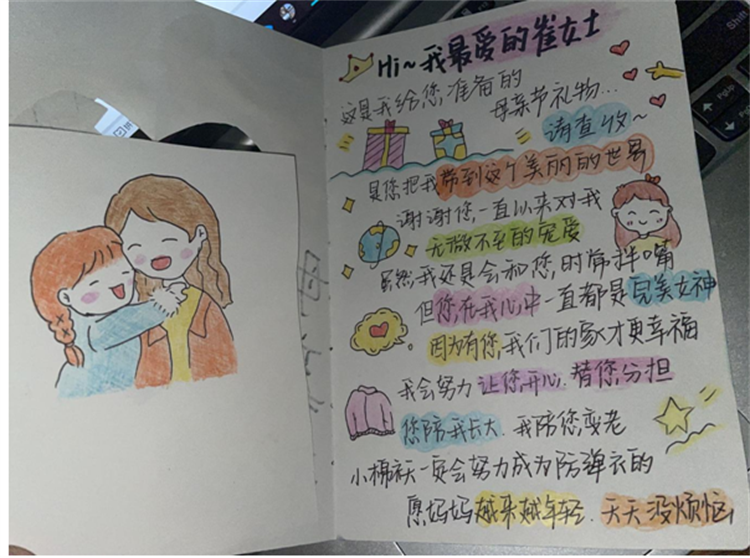 Hi~我最爱的崔女士
这是我给您准备的
母亲节礼物...
请查收~
是您把我带到这个美丽的世界
谢谢您一直以来对我
无微不至的宠爱
虽然我还是会和您时常拌嘴
但您在我心中一直都是完美女神
因为有您,我们的家才更幸福
我会努力让您开心.替您分担
您陪我长大.我陪您变老
小棉袄一定会努力成为防弹衣的
愿妈妈越来越年轻.天天没烦恼
Shift
PgUp
PgDn